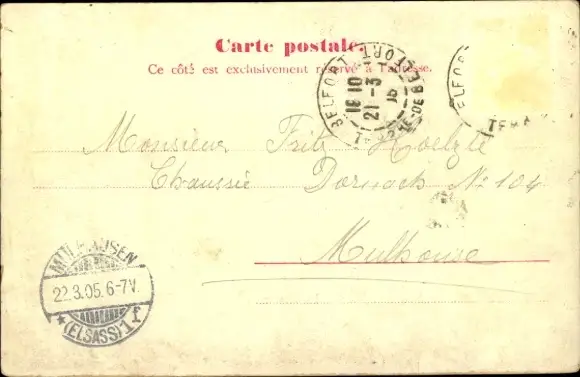 Carte postale.
Ce côté est exclusivement réservé à l'adresse.
BELFORT
18 10
21 - 3
BELFORT
ELFORT
Monsieur Fritz Hoelzle
Chaussié Dornach No 104
Mulhouse
MÜLHAUSEN
22.3.05.6-7V.
* (ELSASS) 1 f